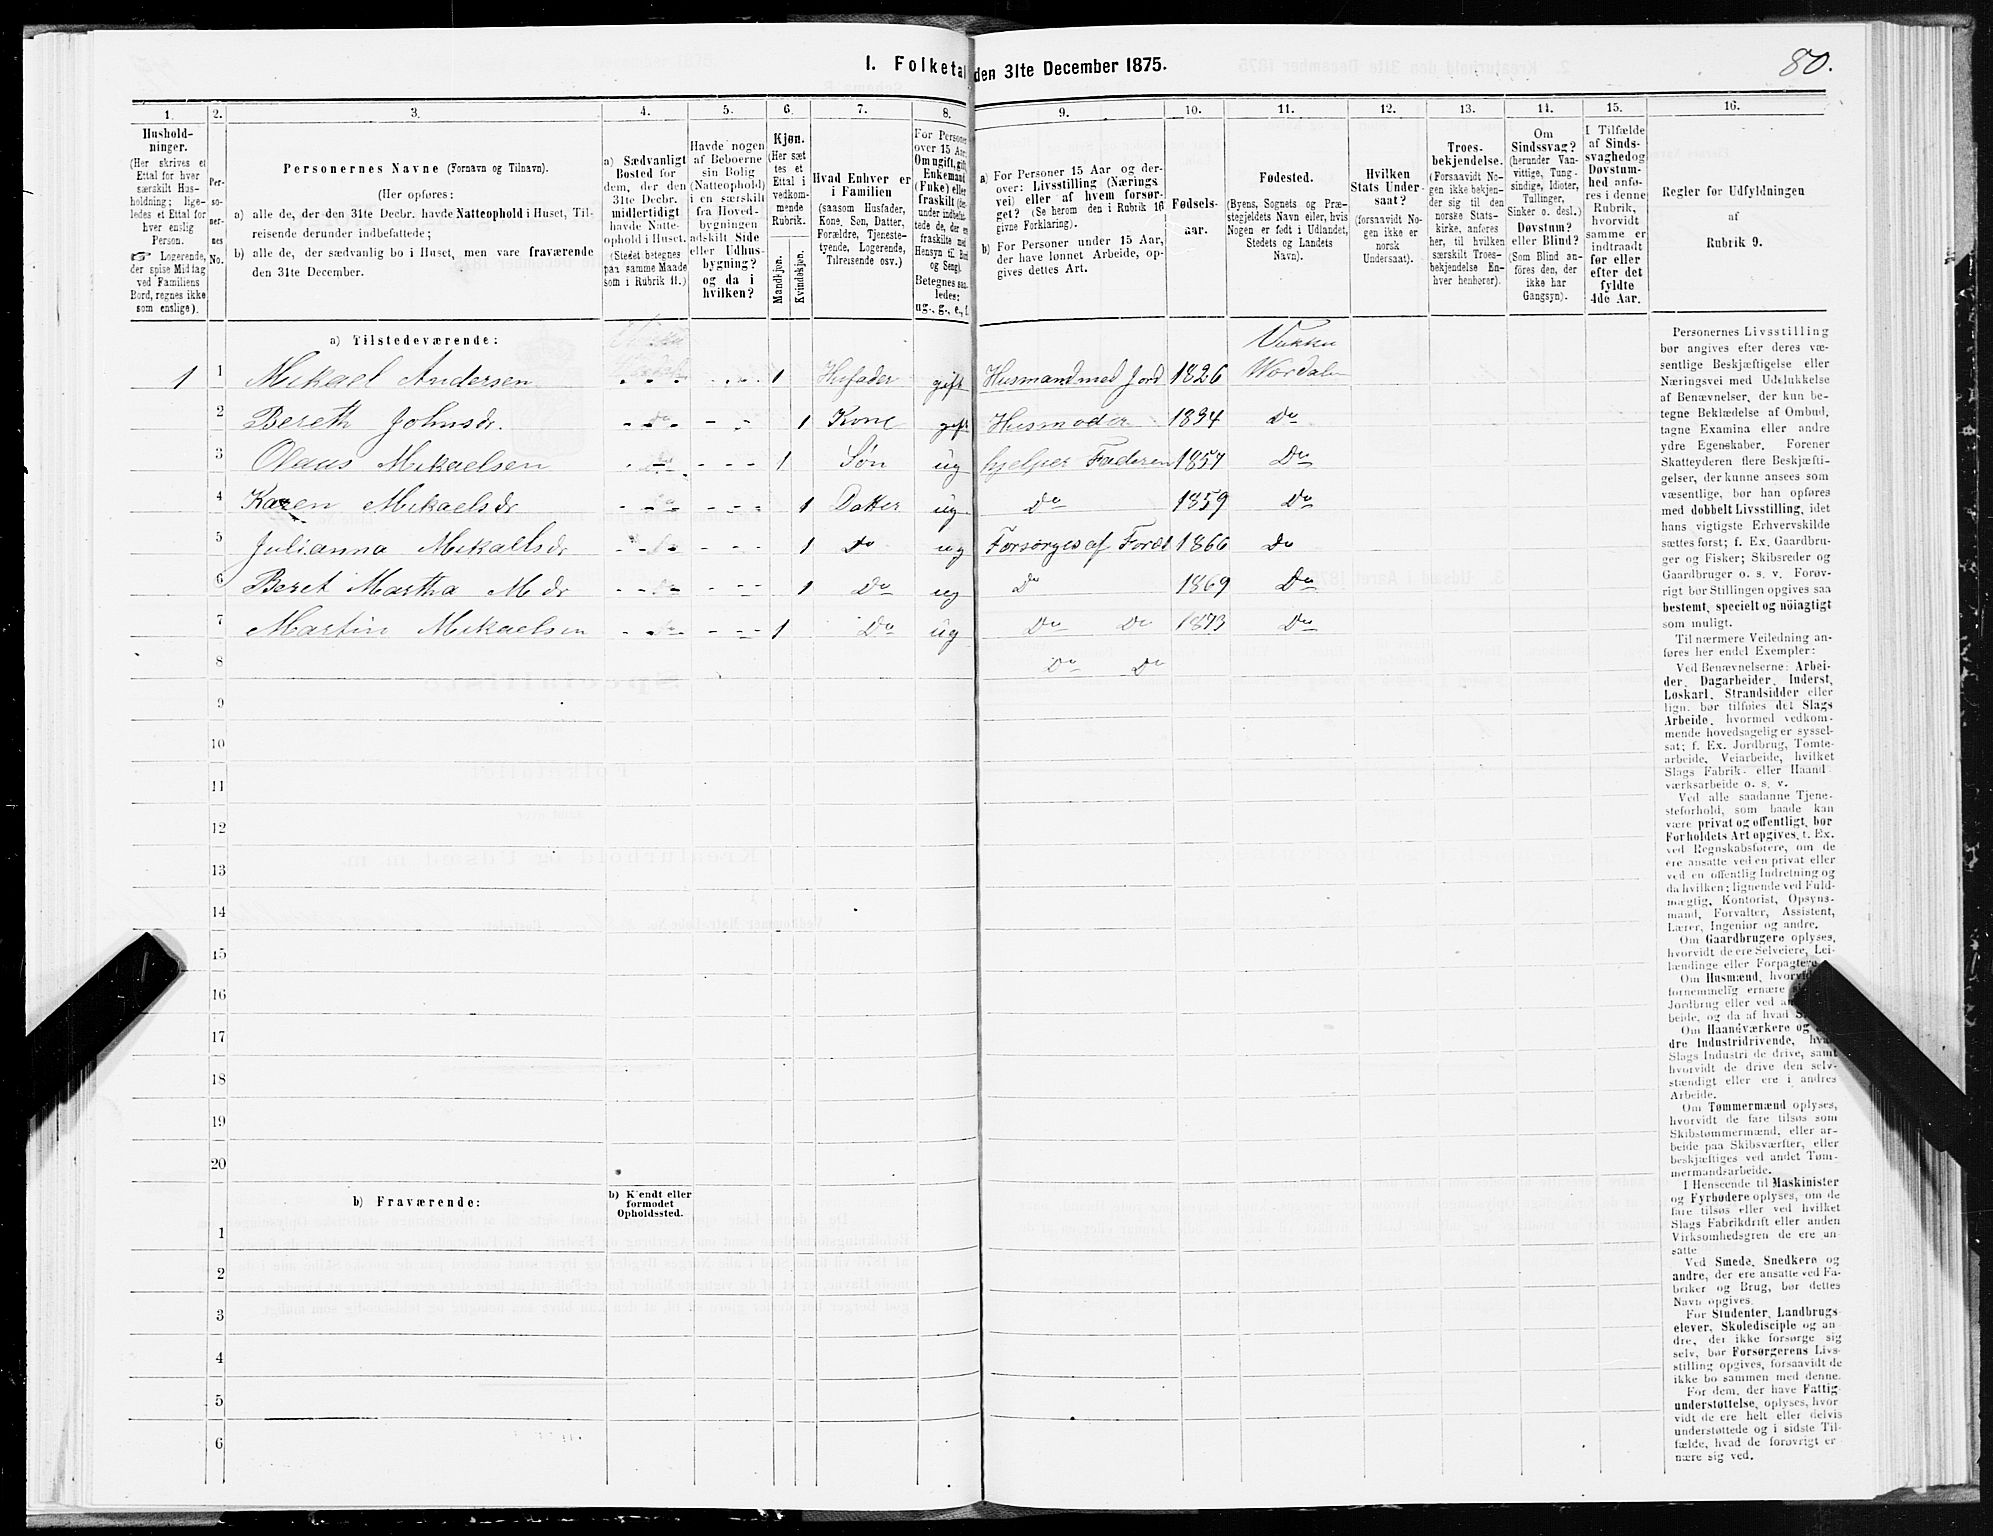 80.
I. Folketal den 31te December 1875.
1. 2. 3. 4. 5. 6. 7. 8. 9. 10. 11. 12. 13. 14. 15. 16.
Hushold-
ninger.
(Her skrives et
Ettal for hver
særskilt Hus-
holdning; lige-
ledes et Ettal for
hver enslig
Person.
☞ Logerende,
der spise Middag
ved Familiens
Bord, regnes ikke
som enslige).
Per-
so-
ner-
nes
No.
Personernes Navne (Fornavn og Tilnavn).
(Her opføres:
a) alle de, der den 31te Decbr. havde Natteophold i Huset, Til-
reisende derunder indbefattede;
b) alle de, der sædvanlig bo i Huset, men vare fraværende
den 31te December.
a) Sædvanligt
Bosted for
dem, der den
31te Decbr.
midlertidigt
havde Natte-
ophold i Huset.
(Stedet betegnes
paa samme Maade
som i Rubrik 11.)
Havde nogen
af Beboerne
sin Bolig
(Natteophold)
i en særskilt
fra Hoved-
bygningen
adskilt Side
eller Udhus-
bygning?
og da i
hvilken?
Kjøn.
(Her sæt
tes et
Ettal i
vedkom-
mende
Rubrik.
Mandkjøn.
Kvindekjøn.
Hvad Enhver er
i Familien
(saasom Husfader,
Kone, Søn, Datter,
Forældre, Tjeneste-
tyende, Logerende,
Tilreisende osv.)
For Personer
over 15 Aar:
Om ugift, gift,
Enkemand
(Enke) eller
fraskilt (der-
under indbefat-
tede de, der ere
fraskilte med
Hensyn til Bord
og Seng).
Betegnes saa-
ledes:
ug., g., e., f.
a) For Personer 15 Aar og der-
over: Livsstilling (Nærings
vei) eller af hvem forsør-
get? (Se herom den i Rubrik 16
givne Forklaring).
b) For Personer under 15 Aar,
der have lønnet Arbeide, op-
gives dettes Art.
Fødsels-
aar.
Fødested.
(Byens, Sognets og Præ-
stegjeldets Navn eller, hvis
Nogen er født i Udlandet,
Stedets og Landets
Navn).
Hvilken
Stats Under-
saat?
(forsaavidt No-
gen ikke er
norsk
Undersaat).
Troes-
bekjendelse.
(Forsaavidt No-
gen ikke bekjen-
der sig til den
norske Stats-
kirke, anføres
her, til hvilken
særskilt Troes-
bekjendelse En-
hver henhører).
Om
Sindssvag?
(herunder Van-
vittige, Tung-
sindige, Idioter,
Tullinger,
Sinker o. desl.)
Døvstum?
eller Blind?
(Som Blind an-
føres den, der
ikke har
Gangsyn).
I Tilfælde
af Sinds-
svaghedog
Døvstum-
hed anfø-
res i denne
Rubrik,
hvorvidt
samme er
indtraadt
før eller
efter det
fyldte
4de Aar.
Regler for Udfyldningen
af
Rubrik 9.
a) Tilstedeværende:
1 1 Mikael Andersen 1 Husfader gift Husmand med Jord 1826 Vukku Wordalen
2 Bereth Johnsdr. Do 1 Kone gift Husmoder 1834 Do
3 Olaus Mikaelsen Do 1 Søn ug hjelper Faderen 1857 Do
4 Karen Mikaelsdr Do 1 Datter ug Do 1859 Do
5 Julianna Mikaelsdr Do 1 Do ug Forsørges af Foræl 1866 Do
6 Beret Martha Mdr Do 1 Do ug Do 1869 Do
7 Martin Mikaelsen Do 1 Do ug Do Do 1873 Do
8 Do Do
9
10
11
12
13
14
15
16
17
18
19
20
b) Fraværende:
b) Kjendt eller
formodet
Opholdssted.
1
2
3
4
5
6
Personernes Livsstilling
bør angives efter deres væ-
sentlige Beskjæftigelse eller
Næringsvei med Udelukkelse
af Benævnelser, der kun be-
tegne Beklædelse af Ombud,
tagne Examina eller andre
ydre Egenskaber. Forener
Skatteyderen flere Beskjæfti-
gelser, der kunne ansees som
væsentlige, bør han opføres
med dobbelt Livsstilling, idet
hans vigtigste Erhvervskilde
sættes først; f. Ex. Gaardbru-
ger og Fisker; Skibsreder og
Gaardbruger o. s. v. Forøv-
rigt bør Stillingen opgives saa
bestemt, specielt og nöiagtigt
som muligt.
Til nærmere Veiledning an-
føres her endel Exempler:
Ved Benævnelserne: Arbei-
der, Dagarbeider, Inderst,
Løskarl, Strandsidder eller
lign. bør tilføies det Slags
Arbeide, hvormed vedkom-
mende hovedsagelig er syssel-
sat; f. Ex. Jordbrug, Tomte-
arbeide, Veiarbeide, hvilket
Slags Fabrik- eller Haand-
værksarbeide o. s. v.
Ved alle saadanne Tjene-
steforhold, som baade kan
være privat og offentligt, bør
Forholdets Art opgives, t. Ex.
ved Regnskabsførere, om de
ere ansatte ved en privat eller
ved en offentlig Indretning og
da hvilken; lignende ved Fuld-
mægtig, Kontorist, Opsyns-
mand, Forvalter, Assistent,
Lærer, Ingeniør og andre.
Om Gaardbrugere oplyses,
hvorvidt de ere Selveiere, Lei-
lændinge eller Forpagtere
Om Husmænd, hvorvidt
fornemmelig ernære
Jordbrug eller ved
beide, og da af hvad
Om Haandværkere og
dre Industridrivende,
Slags Industri de drive, samt
hvorvidt de drive den selv-
stændigt eller ere i andres
Arbeide.
Om Tømmermænd oplyses,
hvorvidt de fare tilsøs som
Skibstømmermænd, eller ar-
beide paa Skibsværfter, eller
beskjæftiges ved andet Tøm-
mermandsarbeide.
I Henseende til Maskinister
og Fyrbødere oplyses, om de
fare tilsøs eller ved hvilket
Slags Fabrikdrift eller anden
Virksomhedsgren de ere an-
satte
Ved Smede, Snedkere og
andre, der ere ansatte ved Fa-
briker og Brug, bør dettes
Navn opgives.
For Studenter, Landbrugs-
elever, Skoledisciple og an-
dre, der ikke forsørge sig
selv, bør Forsørgerens Livs-
stilling opgives, forsaavidt de
ikke bo sammen med denne.
For dem, der have Fattig-
understøttelse, oplyses, hvor
vidt de ere helt eller delvis
understøttede og i sidste Til-
fælde, hvad de forøvrigt er-
nære sig ved.